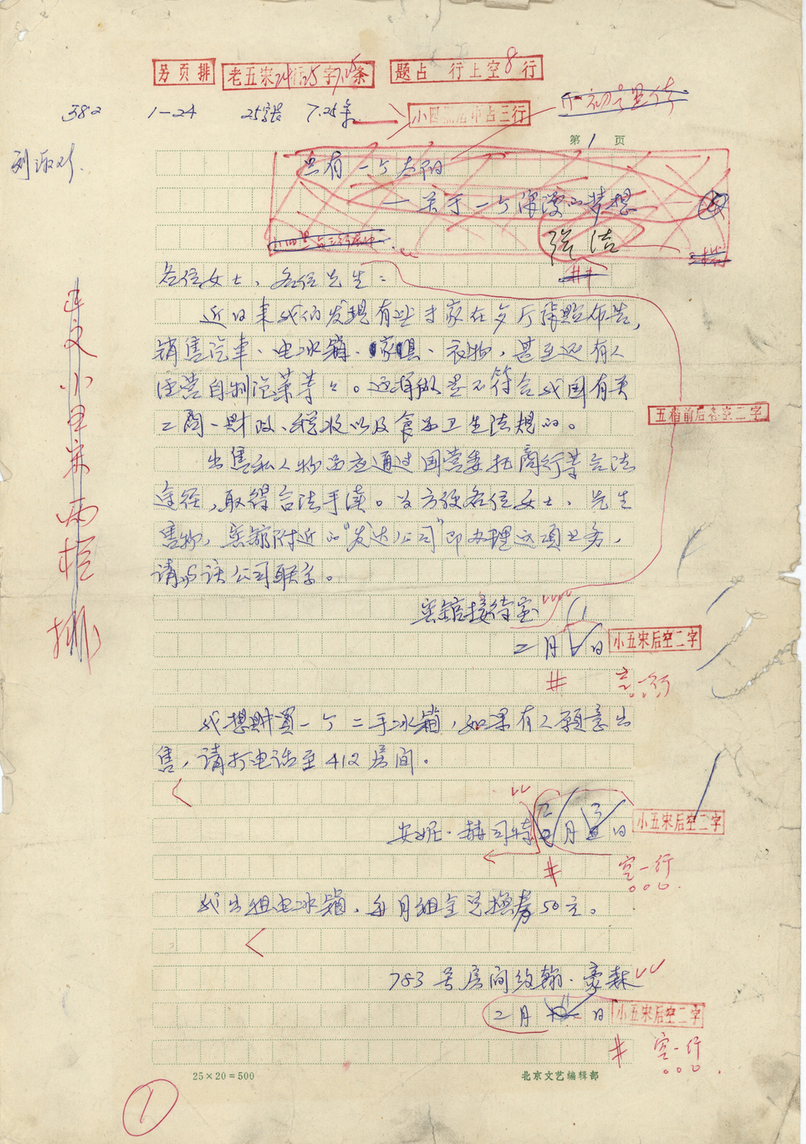 另页排
老五宋24行25字7.25条
题占 行上空8行
382 1-24 25字 7.25条
小四 居中占三行
第1页
只有一个太阳
——关于一个浪漫的梦想
张洁
各位女士、各位先生：
近日来我们发现有些专家在歺厅张贴佈告，
销售汽车、电冰箱、家俱、衣物，甚至还有人
经营自制泡菜等等。这种做是不符合我国有关
工商、财政、税收以及食品卫生法规的。
出售私人物品应通过国营委托商行等合法
途径，取得合法手续。为方便各位女士、先生
售物，宾馆附近的“发达公司”即办理这项业务，
请与该公司联系。
五稿前后各空二字
宾馆接待室
二月 日
小五宋后空二字
空一行
正文小五宋两栏排
我想购买一个二手冰箱，如果有人愿意出
售，请打电话至412房间。
安妮·赫司特 月 日
小五宋后空二字
空一行
我出租电冰箱，每月租金兑换券50元。
783号房间约翰·豪森
二月 日
小五宋后空二字
空一行
25×20=500
北京文艺编辑部
1